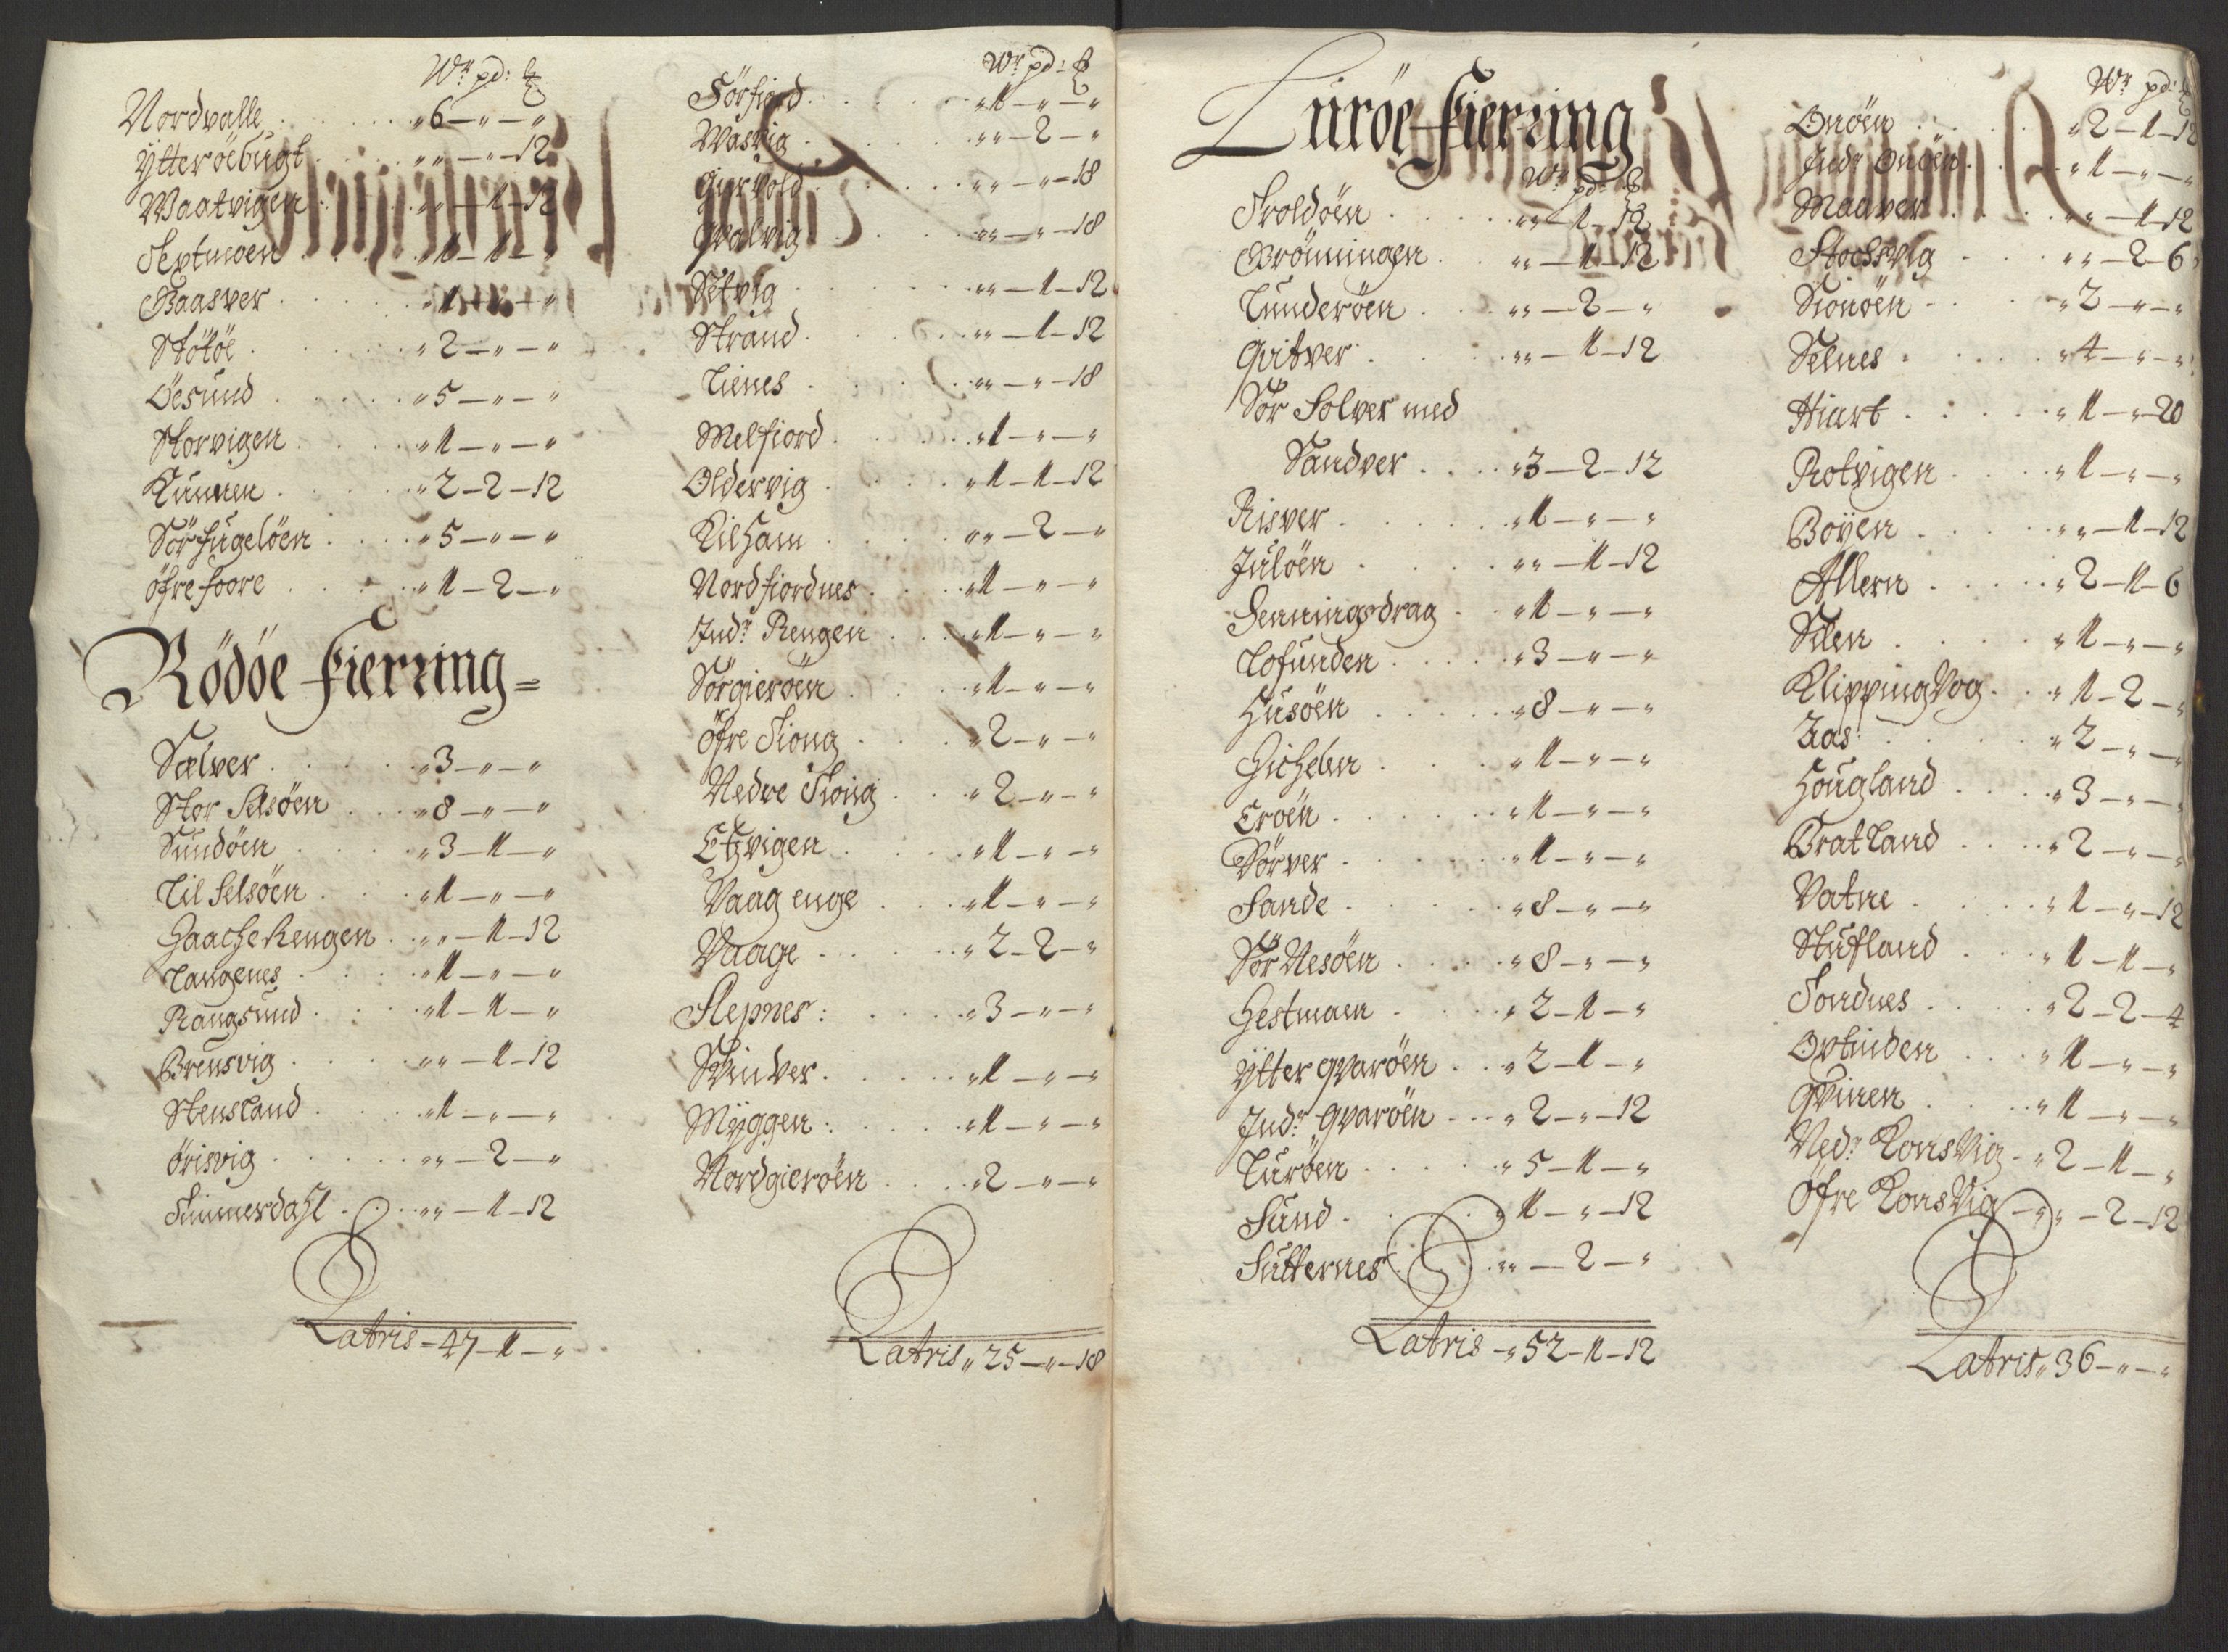 Wr pd: ℔
Nordvalle . . . . „ 6 — „ — „
Ytteröebugt . . . „ „ — „ — 12
Waatvigen . . . „ „ — 1 — 12
Textmoen . . . „ 1 — 1 — „
Baasver . . . „ 1 — „ — „
Stötöe . . . „ 2 — „ — „
Öesund . . . „ 5 — „ — „
Storvigen . . . „ 1 — „ — „
Kunnen . . . „ 2 — 2 — 12
Sör fugelöen . . . „ 5 — „ — „
öfre foore . . . „ 1 — 2 — „
Rödöe fierring =
Sælver . . . „ 3 — „ — „
Stor Selsöen . . . „ 8 — „ — „
Sundöen . . . „ 3 — 1 — „
Lil Selsöen . . . „ 1 — „ — „
Haache Rengen . . „ „ — 1 — 12
Langenes . . . „ 1 — „ — „
Rangsund . . . „ 1 — 1 — „
Brensvig . . . „ „ — 1 — 12
Stensland . . . „ 1 — „ — „
örisvig . . . „ „ — 2 — „
Simmerdahl . . . „ „ — 1 — 12
Latris — 47 — 1 — „
Wr pd: ℔
Sörfiord . . . „ 1 — „ — „
Wasvig . . . „ „ — 2 — „
Giervold . . . „ „ — „ — 18
Gvalvig . . . „ „ — „ — 18
Setvig . . . „ „ — 1 — 12
Strand . . . „ „ — 1 — 12
Lienes . . . „ „ — „ — 18
Melfiord . . . „ 1 — „ — „
Oldervig . . . „ 1 — 1 — 12
Kilham . . . „ „ — 2 — „
Nordfiordnes . . . „ 1 — „ — „
Indr Rengen . . . „ 1 — „ — „
Sörgieröen . . . „ 1 — „ — „
öfre Siong . . . „ 2 — „ — „
Nedre Siong . . . „ 2 — „ — „
Etzvigen . . . „ 1 — „ — „
Vaag enge . . . „ 1 — „ — „
Vaage . . . „ 2 — 2 — „
Slepnes: . . . „ 3 — „ — „
Svinver . . . „ 1 — „ — „
Myggen: . . . „ 1 — „ — „
Nordgieröen . . . „ 2 — „ — „
Latris „ 25 — „ — 18
Luröe fierring
Wr pd: ℔
Troldöen . . . „ „ — 1 — 12
Brönningen . . . „ „ — 1 — 12
Lunderöen . . . „ „ — 2 — „
Gvitver . . . „ „ — 1 — 12
Sör Solver med
Sandver . . . „ 3 — 2 — 12
Risver . . . „ 1 — „ — „
Julöen . . . „ „ — 1 — 12
Senningsdrag . . „ 1 — „ — „
Lofunden . . . „ 3 — „ — „
Husöen . . . „ 8 — „ — „
Gichelen . . . „ 1 — „ — „
Eroen . . . „ 1 — „ — „
Sörver . . . „ 1 — „ — „
Sande . . . „ 8 — „ — „
Sör Nesöen . . . „ 8 — „ — „
Hestmaen . . . „ 2 — 1 — „
Ytter gvaröen . . „ 2 — 1 — „
Indr: gvaröen . . „ 2 — „ — 12
Luröen . . . „ 5 — 1 — „
Sund . . . „ 1 — „ — 12
Sutternes . . . „ „ — 2 — „
Latris — „ 52 — 1 — 12
Wr pd: ℔
Onöen . . . „ 2 — 1 — 12
Indr Onöen . . . „ 1 — „ — „
Maaver . . . „ „ — 1 — 12
Stochsvig . . . „ „ — 2 — 6
Sionöen . . . „ 2 — „ — „
Selnes . . . „ 4 — „ — „
Hiart . . . „ 1 — „ — 20
Rotvigen . . . „ 1 — „ — „
Boyen . . . „ „ — 1 — 12
Allern . . . „ 2 — 1 — 6
Silen . . . „ 1 — „ — „
Klipping Vog . . „ 1 — 2 — „
Aas . . . „ 2 — „ — „
Hougland . . . „ 3 — „ — „
Bratland . . . „ 2 — „ — „
Vatne . . . „ 1 — „ — 12
Stufland . . . „ 1 — 1 — „
Sondnes . . . „ 2 — 2 — 4
Ovtinden . . . „ 1 — „ — „
Gvinen . . . „ 1 — „ — „
Ned: KonsVig — „ 2 — 1 — „
Öfre KonsVig — „ „ — 2 — 12
Latris „ 36 — „ — „